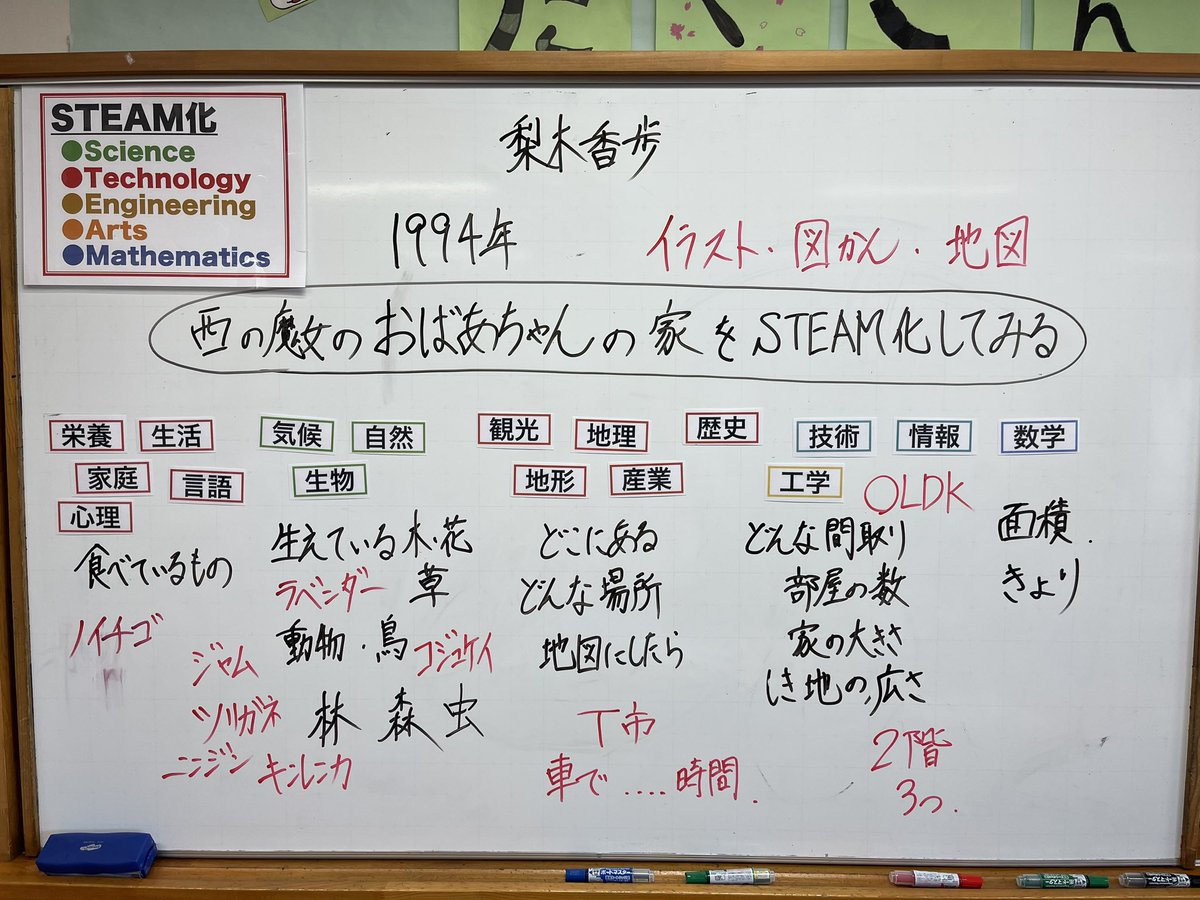 STEAM化
●Science
●Technology
●Engineering
●Arts
●Mathematics
梨木香歩
1994年
イラスト・図かん・地図
西の魔女のおばあちゃんの家をSTEAM化してみる
栄養 生活
家庭 言語
心理
食べているもの
ノイチゴ
ジャム
気候 自然
生物
生えている木・花
ラベンダー 草
動物・鳥 コジュケイ
林 森 虫
ツリガネ
ニンジン キンレンカ
観光 地理 歴史
地形 産業
どこにある
どんな場所
地図にしたら
T市
車で....時間.
技術 情報
工学 OLDK
どんな間取り
部屋の数
家の大きさ
しき地の広さ
2階
3つ.
数学
面積.
きょり